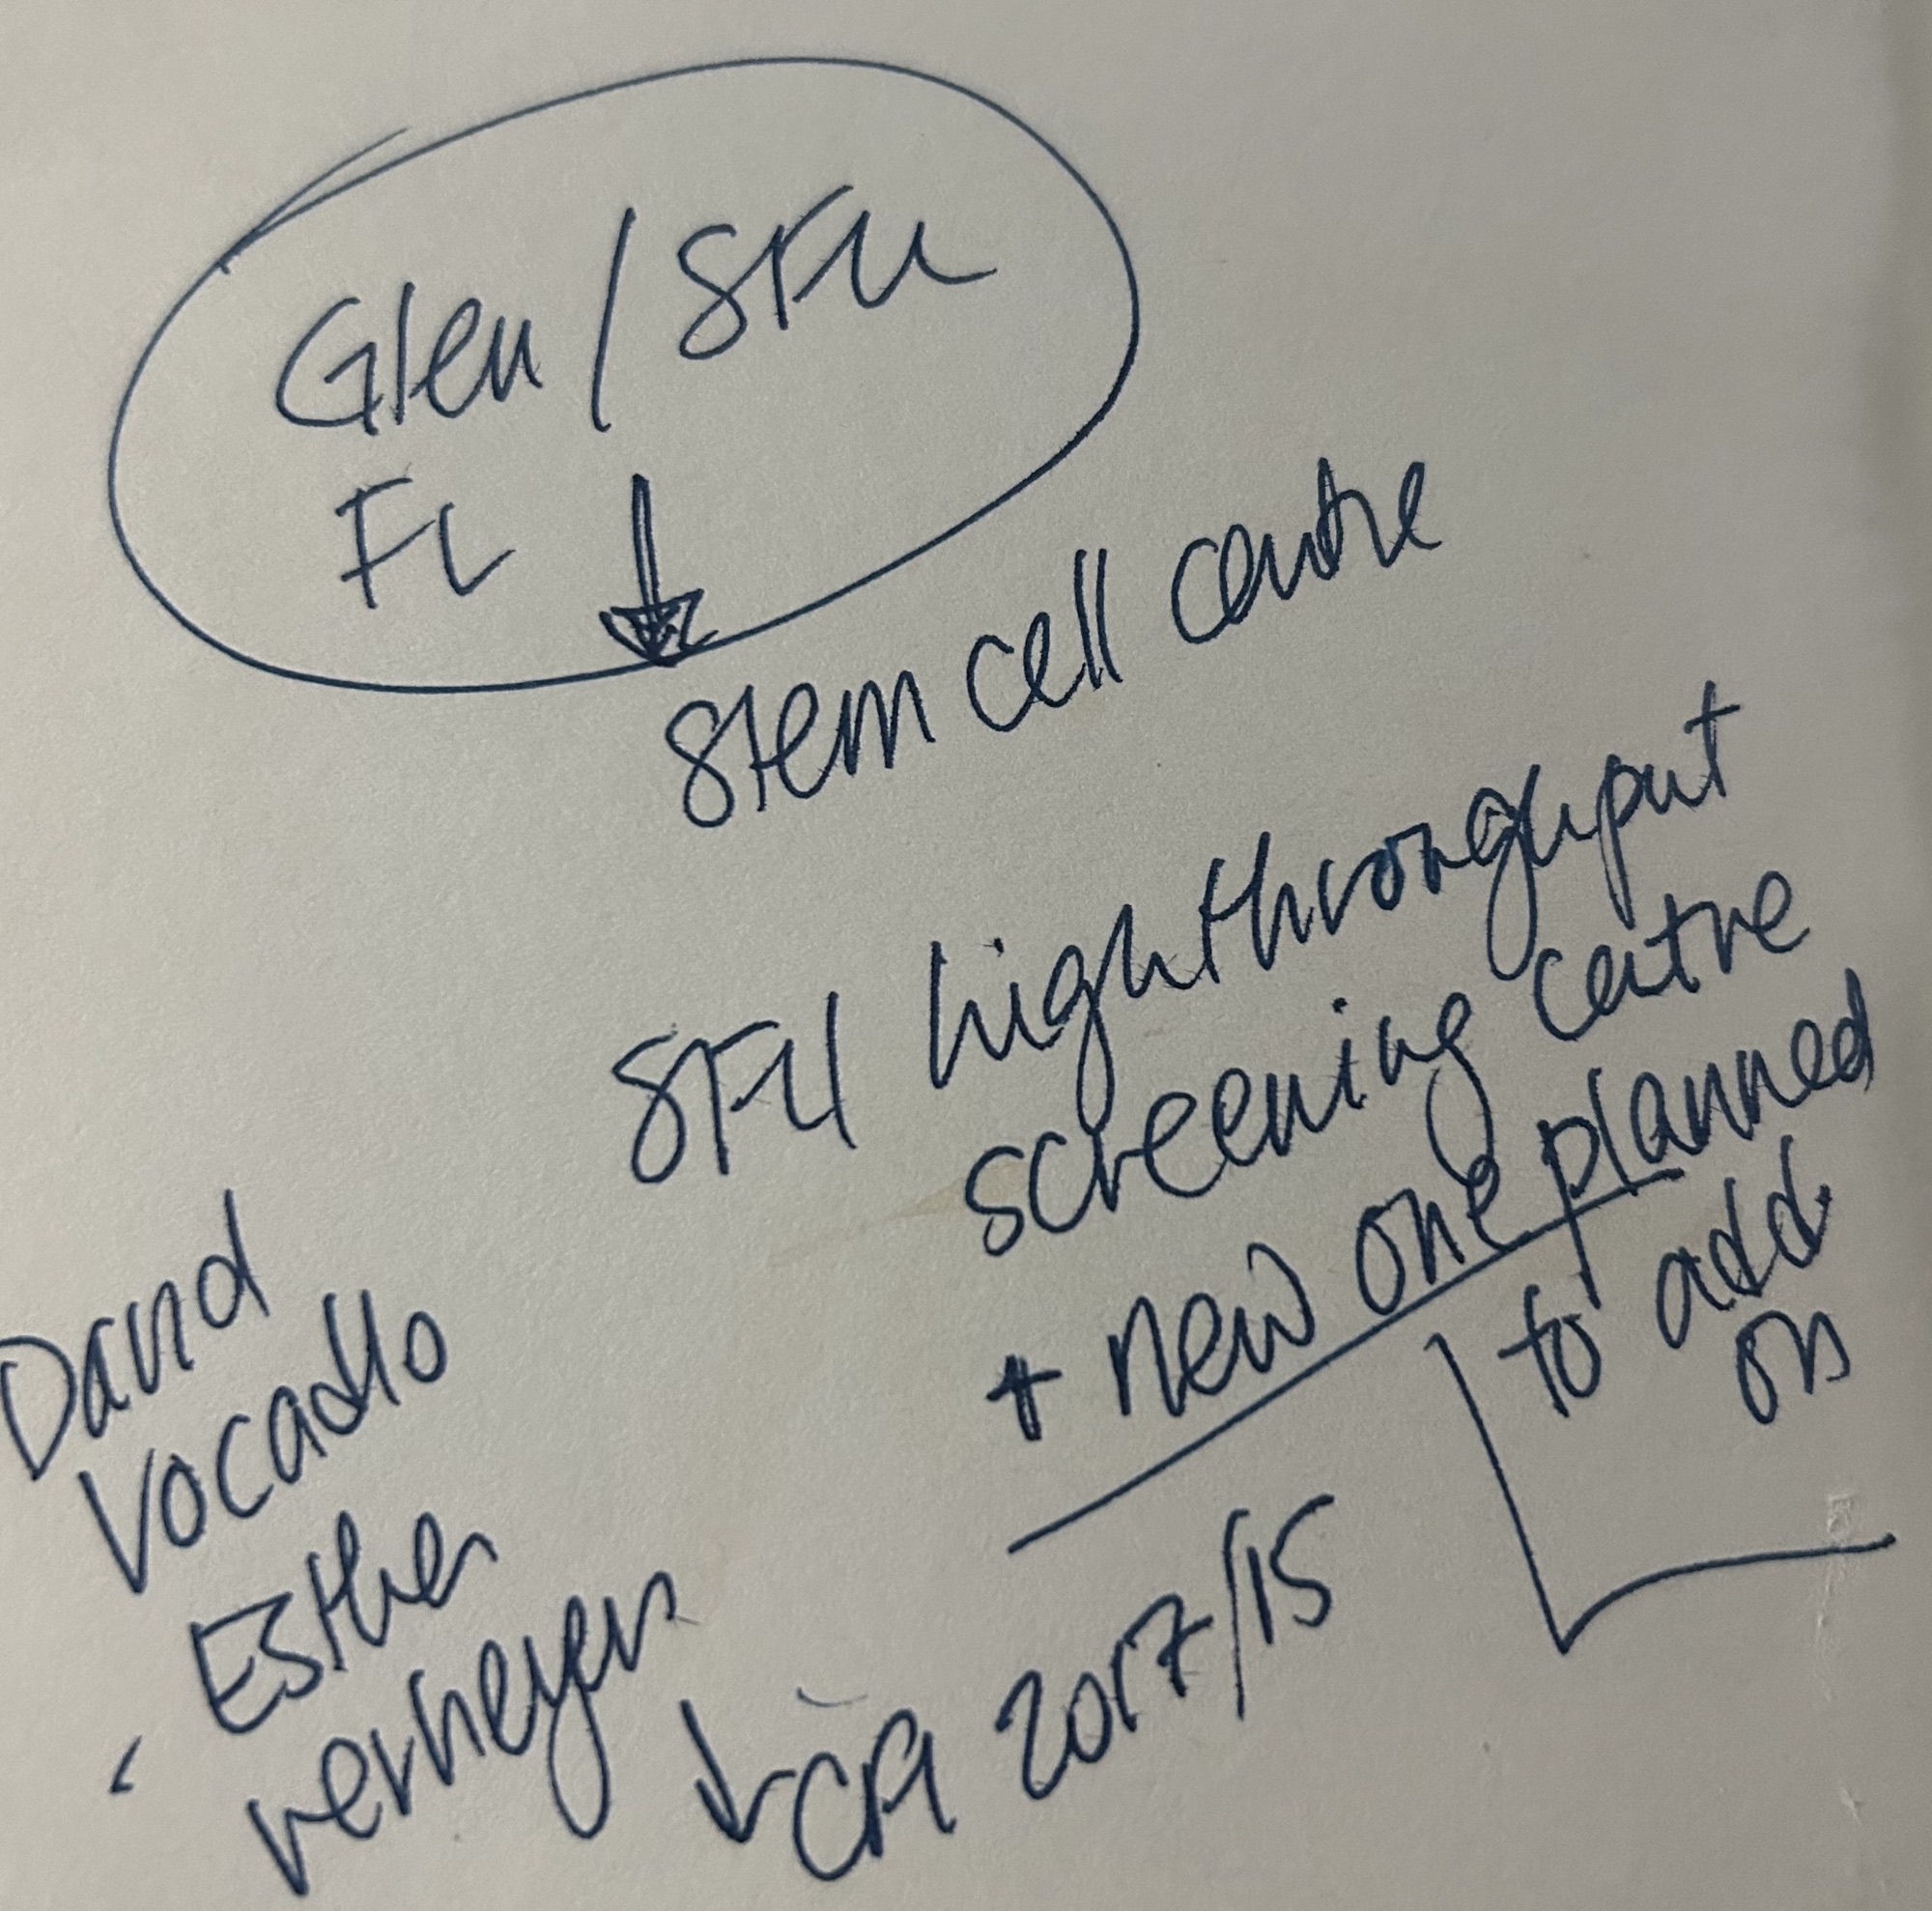 Glen / SFU
FL
Stem cell centre
SFU high throughput
screening centre
+ new one planned
to add
on
David
Vocadlo
Esther
verheyen
CFI 2017/15